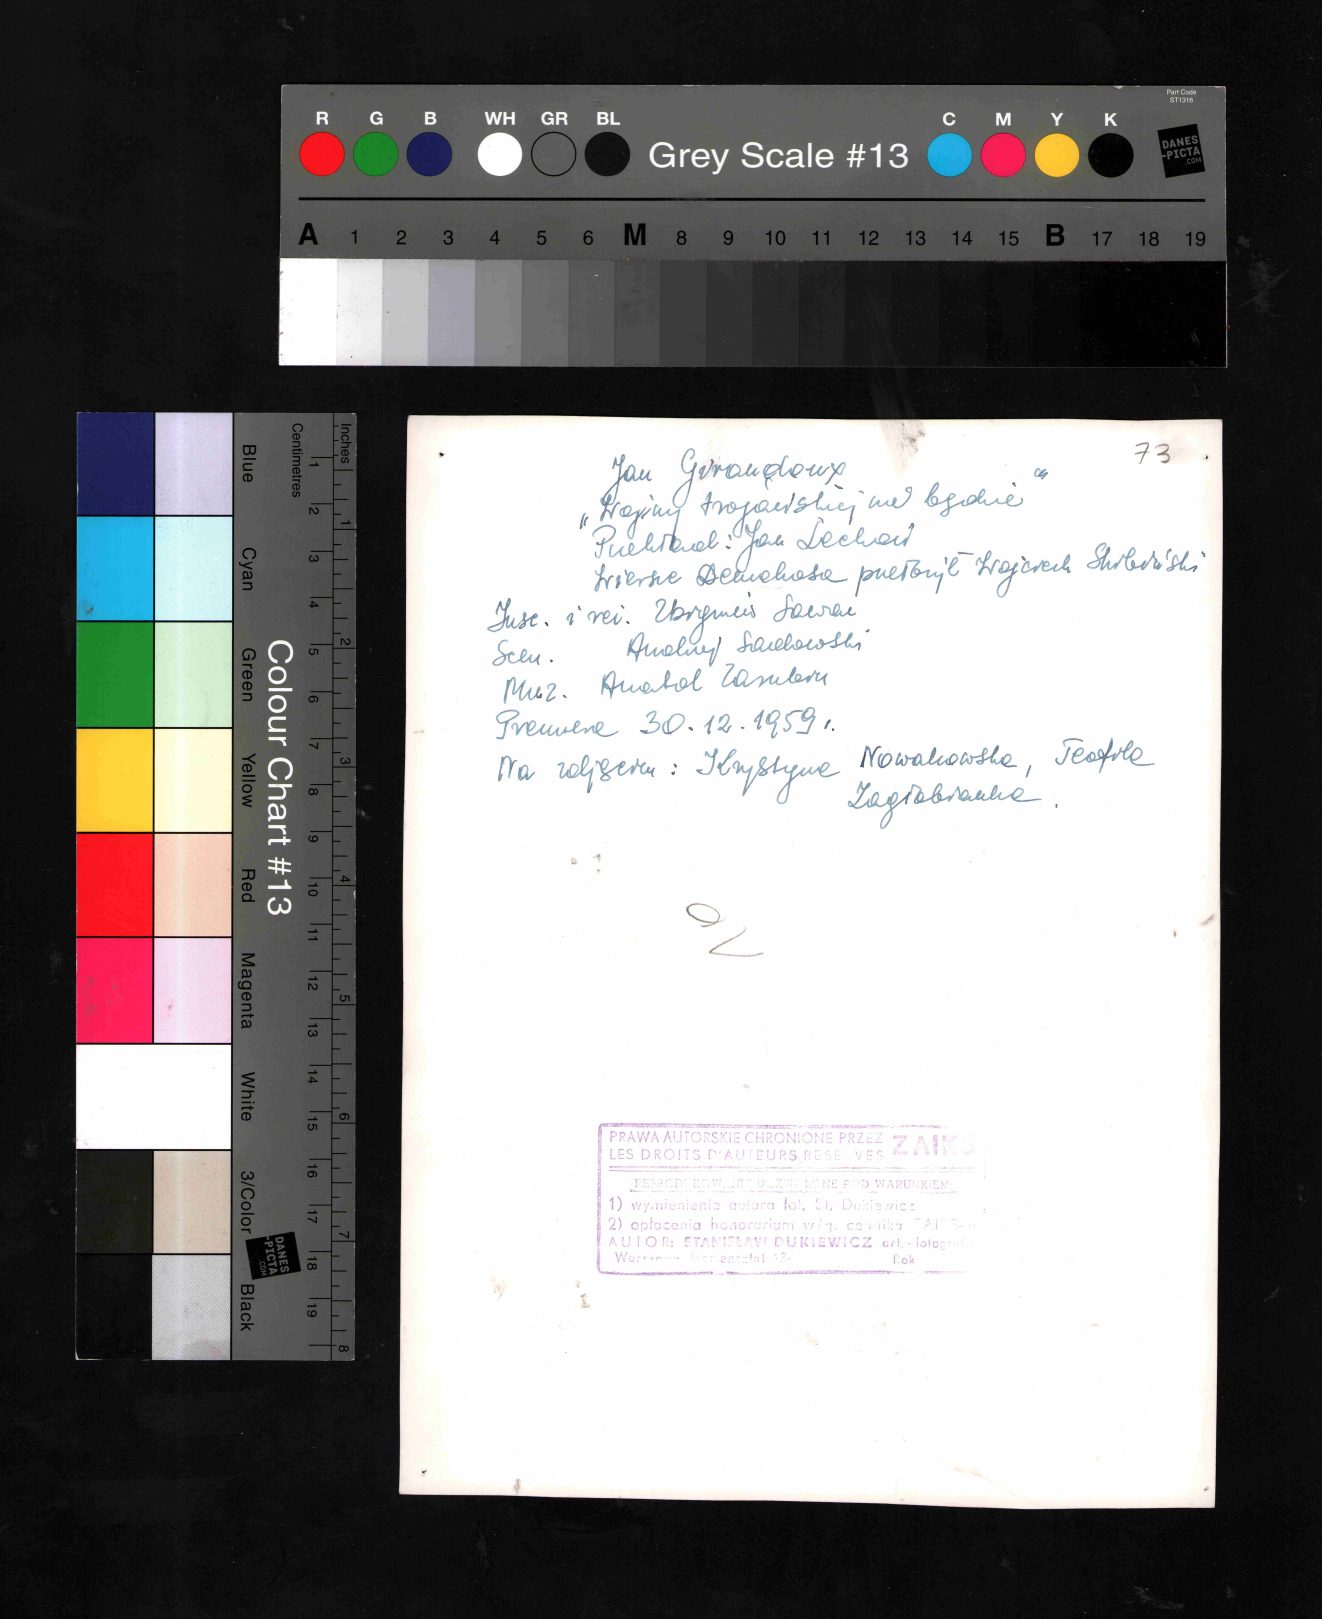 Part Code
ST1316
R G B WH GR BL C M Y K
Grey Scale #13
DANES
-PICTA
.COM
A 1 2 3 4 5 6 M 8 9 10 11 12 13 14 15 B 17 18 19
Inches
Centimetres
1 2 3 4 5 6 7 8 9 10 11 12 13 14 15 16 17 18 19
1 2 3 4 5 6 7 8
Colour Chart #13
Blue
Cyan
Green
Yellow
Red
Magenta
White
3/Color
Black
DANES
-PICTA
.COM
73
Jan Giraudoux
„Wojny trojańskiej nie będzie"
Przekład: Jan Lechoń
Wiersze Demokosa przełożył Wojciech
Insc. i reż. Zbigniew Sawan
Scen. Andrzej Sadowski
Muz. Anatol Zarubin
Premiera 30.12.1959 r.
Na zdjęciu: Krystyna Nowakowska, Teofila
Zagłobianka.
PRAWA AUTORSKIE CHRONIONE PRZEZ ZAIKS
LES DROITS D'AUTEURS RESERVES
REPRODUKOWANIE DOZWOLONE POD WARUNKIEM:
1) wymienienia autora fot. St. Dukiewicz
2) opłacenia honorarium w/g. cennika
AUTOR: STANISŁAW DUKIEWICZ art.-fotograf
Warszawa Mariensztat
Rok